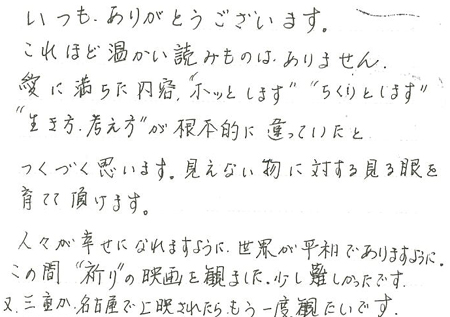 いつも、ありがとうございます。
これほど温かい読みものは、ありません。
愛に満ちた内容、“ホッとします”“ちくりとします”
“生き方、考え方”が根本的に違っていたと
つくづく思います。見えない物に対する見る眼を
育てて頂けます。
人々が幸せになれますように、世界が平和でありますように。
この間“祈り”の映画を観ました。少し難しかったです。
又、三重か、名古屋で上映されたら、もう一度、観たいです。